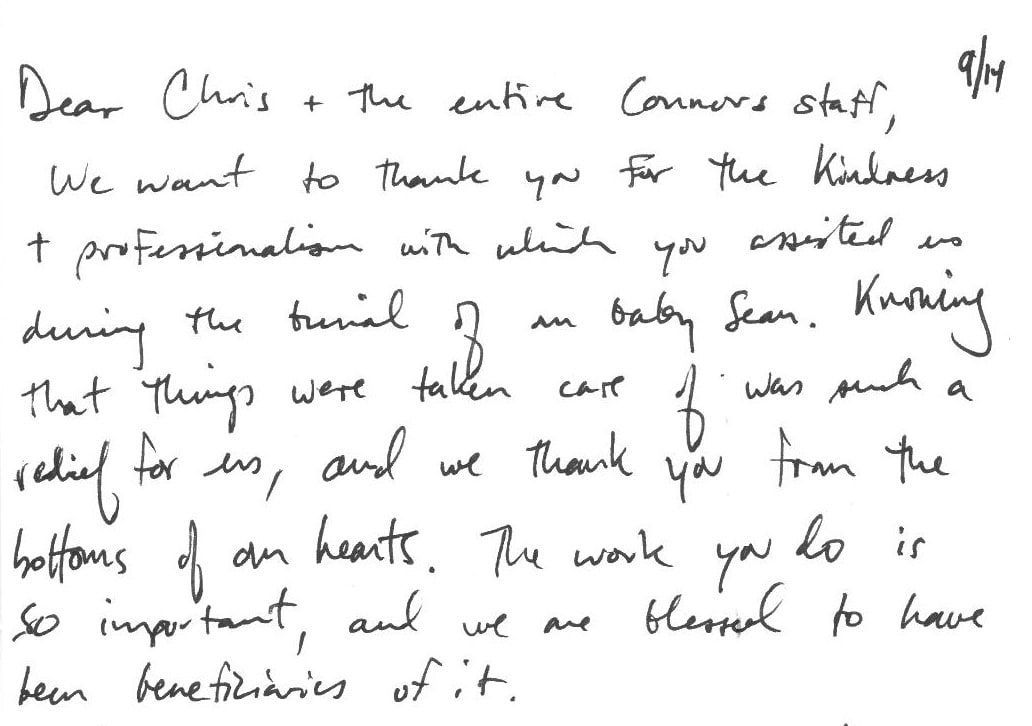 9/14
Dear Chris + the entire Connors staff,
We want to thank you for the kindness
+ professionalism with which you assisted us
during the burial of our baby Sean. Knowing
that things were taken care of was such a
relief for us, and we thank you from the
bottoms of our hearts. The work you do is
so important, and we are blessed to have
been beneficiaries of it.